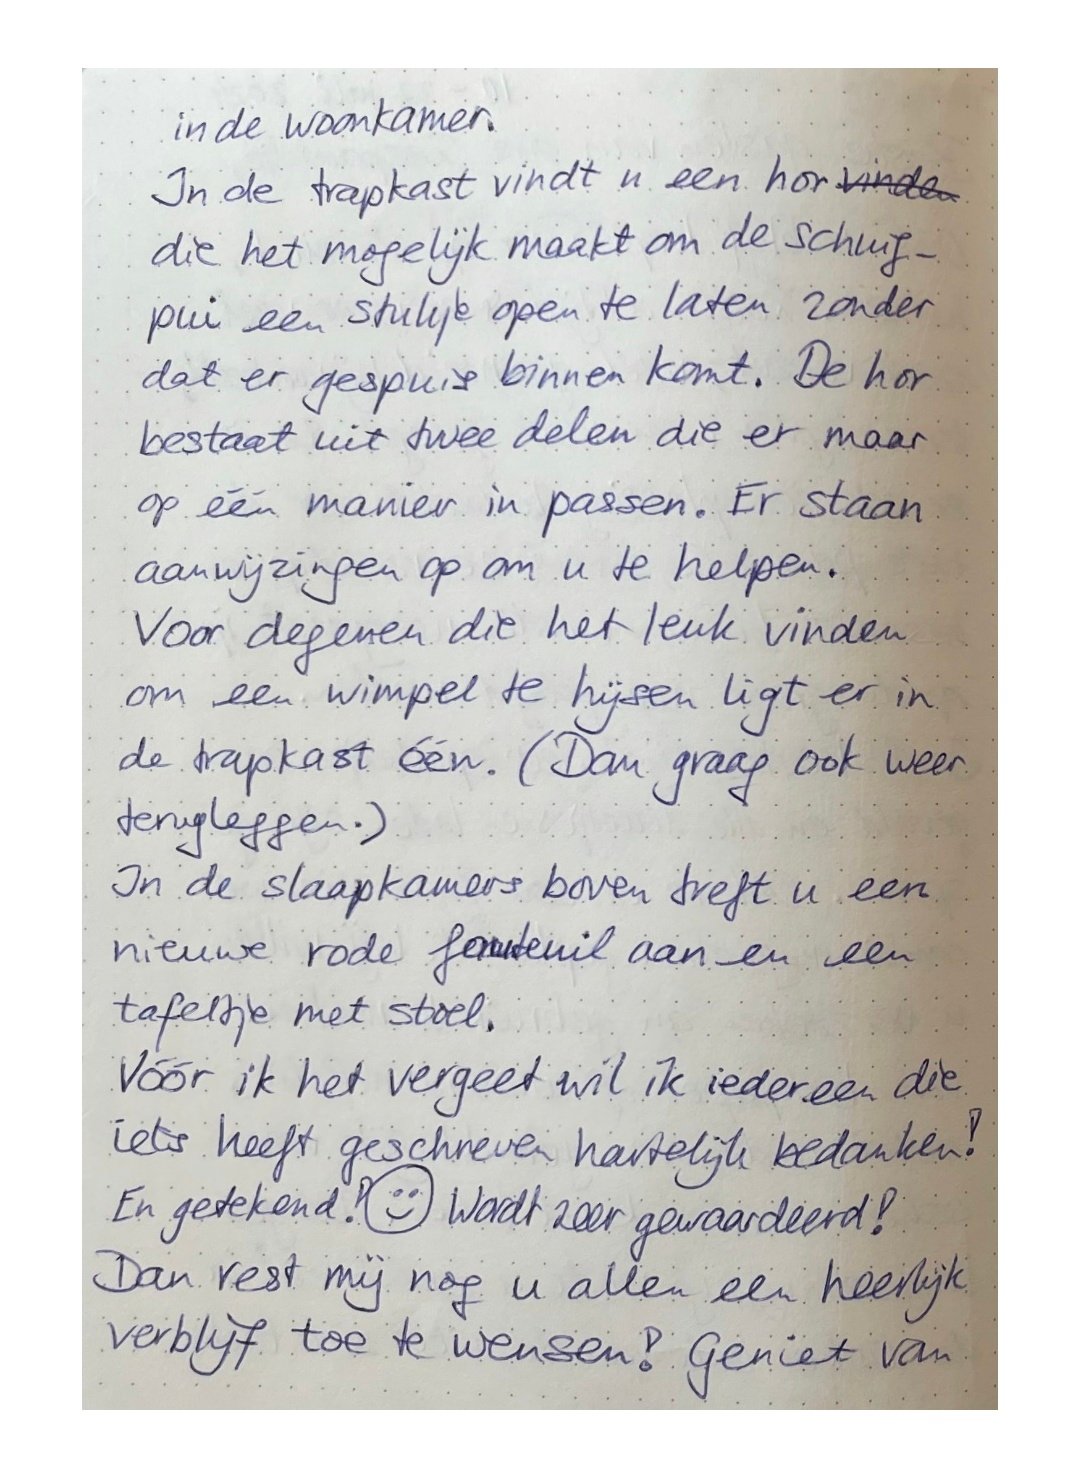 in de woonkamer.
In de trapkast vindt u een hor vinden
die het mogelijk maakt om de schuif-
pui een stukje open te laten zonder
dat er gespuis binnen komt. De hor
bestaat uit twee delen die er maar
op één manier in passen. Er staan
aanwijzingen op om u te helpen.
Voor degenen die het leuk vinden
om een wimpel te hijsen ligt er in
de trapkast één. (Dan graag ook weer
terugleggen.)
In de slaapkamers boven treft u een
nieuwe rode fauteuil aan en een
tafeltje met stoel.
Vóór ik het vergeet wil ik iedereen die
iets heeft geschreven hartelijk bedanken!
En getekend! Wordt zeer gewaardeerd!
Dan rest mij nog u allen een heerlijk
verblijf toe te wensen! Geniet van